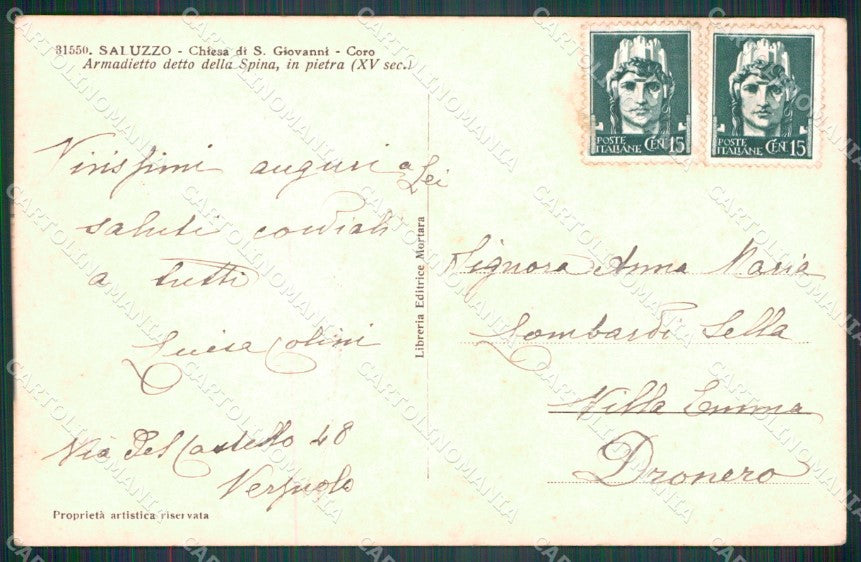 31550. SALUZZO - Chiesa di S. Giovanni - Coro
Armadietto detto della Spina, in pietra (XV sec.)
POSTE ITALIANE CEN. 15
POSTE ITALIANE CEN. 15
Vivissimi auguri a Lei
saluti cordiali
a tutti
Lucia Colini
Via del Castello 48
Verzuolo
Proprietà artistica riservata
Libreria Editrice Mortara
Signora Anna Maria
Lombardi Sella
Villa Emma
Dronero
CARTOLINOMANIA